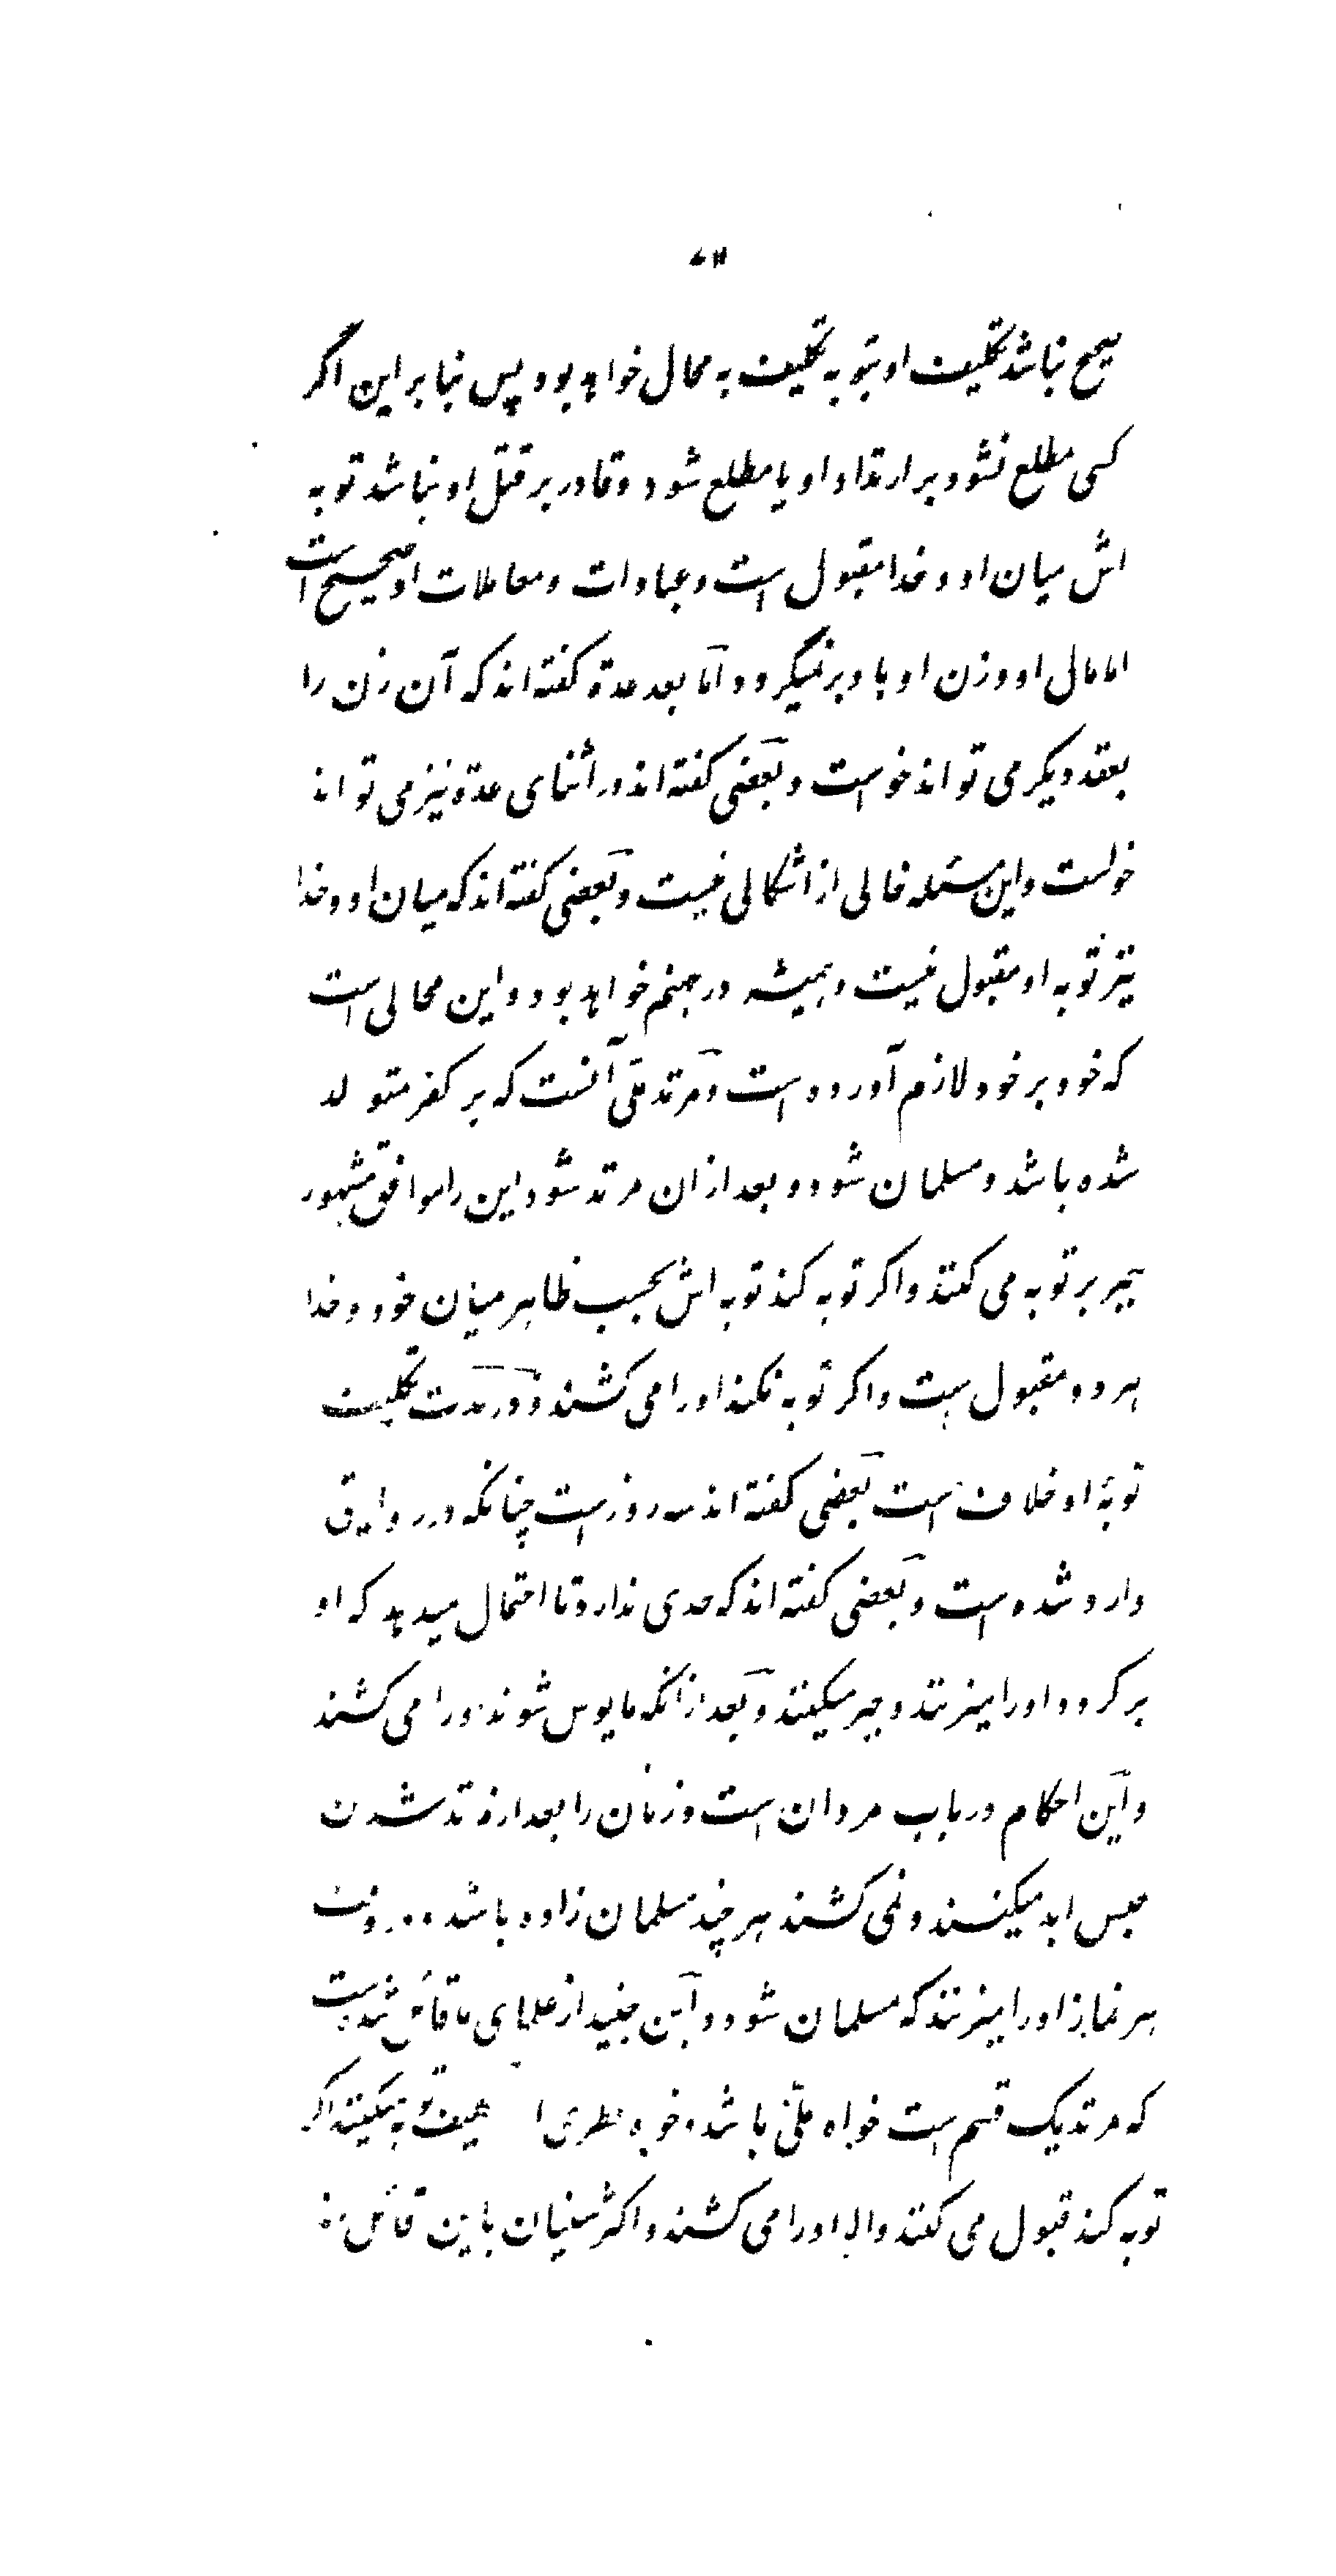 صحیح نباشد تکلیف او بتوبه تکلیف به محال خواهد بود پس بنابراین اگر
کسی مطلع نشود بر ارتداد او یا مطلع شود و قادر بر قتل او نباشد توبه
اش میان او و خدا مقبول است و عبادات و معاملات او صحیح است
اما مالی او و زن او باو بر نمیگردد و اما بعد عدة کفته اند که آن زن را
بعقد دیکر می تواند خواست و بعضی کفته اند در اثنای عدة نیز می تواند
خواست و این مسئله خالی از اشکالی نیست و بعضی کفته اند که میان او و خدا
نیز توبه او مقبول نیست و همیشه در جهنم خواهد بود و این محالی است
که خود بر خود لازم آورده است و مرتد ملی آنست که بر کفر متولد
شده باشد و مسلمان شود و بعد ازان مرتد شود این را موافق مشهور
جبر بر توبه می کنند و اکر توبه کند توبه اش بحسب ظاهر میان خود و خدا
هر دو مقبول است و اکر توبه نکند او را می کشند و در مدت تکلیف
توبۀ او خلاف است بعضی کفته اند سه روز است چنانکه در روایتی
وارد شده است و بعضی کفته اند که حدی ندارد تا احتمال میدهد که او
بر کردد او را میزنند و جبر میکنند و بعد ازانکه مایوس شوند او را می کشند
و این احکام در باب مردان است و زنان را بعد از مرتد شدن
حبس ابد میکنند و نمی کشند هر چند مسلمان زاده باشد و در وقت
هر نماز او را میزنند که مسلمان شود و ابن جنید از علمای ما قائل شده است
که مرتد یک قسم است خواه ملی باشد و خواه فطری او تکلیف توبه میکنند اکر
توبه کند قبول می کنند والا او را می کشند و اکثر سنیان باین قائل